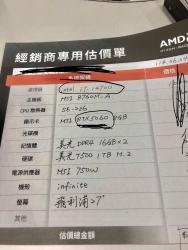 經銷商專用估價單
AMD
處理器 intel i7-14700
主機板 MSI B760M-A
CPU散熱器 SE-226
顯示卡 MSI RTX5060 8GB
光碟機
記憶體 美光 DDR4 16GB×2
硬碟 美光 T500 1TB M.2
電源供應器 MSI 750W
機殼 infinite
螢幕 飛利浦27"
其他
估價總金額